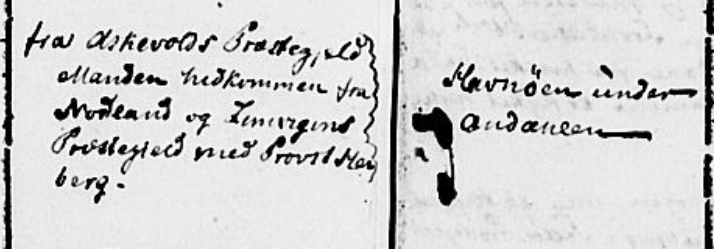 fra Askevolds Præstegield
Manden hidkommen fra
Nordland og
Præstegield med Provst Hen
berg.
Havnöen under
Andanæs